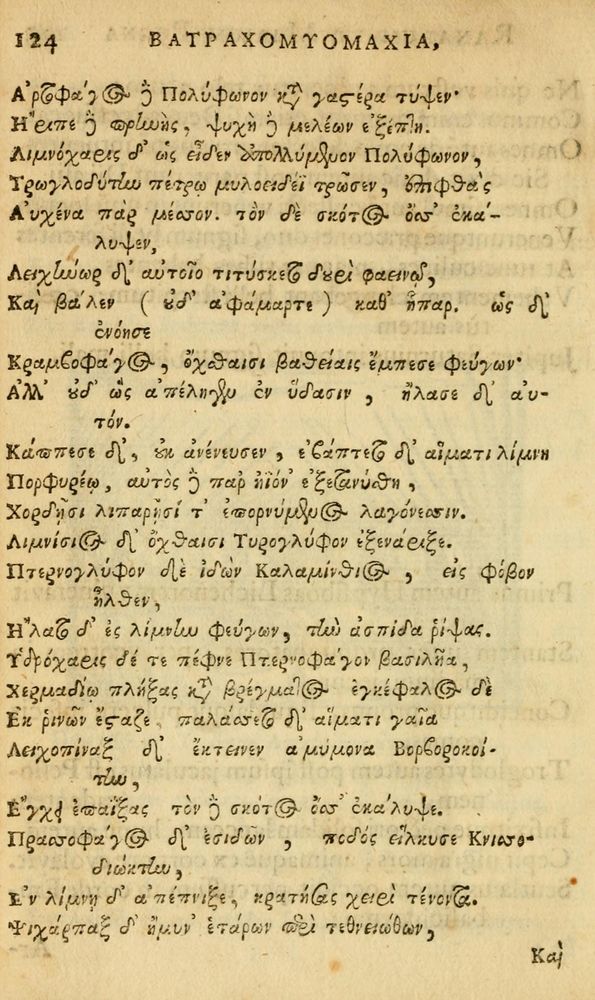 124 ΒΑΤΡΑΧΟΜΥΟΜΑΧΙΑ,
Ἀρτοφάγος δὲ Πολύφωνον κατὰ γαστέρα τύψεν·
Ἤριπε δὲ πρηνὴς, ψυχὴ δὲ μελέων ἐξέπτη.
Λιμνόχαρις δ' ὡς εἶδεν ἀπολλύμενον Πολύφωνον,
Τρωγλοδύτην πέτρῳ μυλοειδέϊ τρῶσεν, ἐπιφθὰς
Αὐχένα πὰρ μέσσον. τὸν δὲ σκότος ὄσσ' ἐκά-
λυψεν,
Λειχήνωρ δ' αὐτοῖο τιτύσκετο δουρὶ φαεινῷ,
Καὶ βάλεν (οὐδ' ἀφάμαρτε) καθ' ἧπαρ. ὡς δ'
ἐνόησε
Κραμβοφάγος, ὄχθαισι βαθείαις ἔμπεσε φεύγων·
Ἀλλ' οὐδ' ὣς ἀπέληγεν ἐν ὕδασιν, ἤλασε δ' αὐ-
τόν.
Κάππεσε δ', οὐκ ἀνένευσεν, ἐβάπτετο δ' αἵματι λίμνη
Πορφυρέῳ, αὐτὸς δὲ παρ' ἠϊόν' ἐξετανύσθη,
Χορδῇσι λιπαρῇσί τ' ἐπορνύμενος λαγόνεσσιν.
Λιμνίσιος δ' ὄχθαισι Τυρογλύφον ἐξενάριξε.
Πτερνογλύφον δὲ ἰδὼν Καλαμίνθιος, εἰς φόβον
ἦλθεν,
Ἥλατο δ' ἐς λίμνην φεύγων, τὴν ἀσπίδα ῥίψας.
Ὑδρόχαρις δέ τε πέφνε Πτερνοφάγον βασιλῆα,
Χερμαδίῳ πλήξας κατὰ βρέγματος, ἐγκέφαλος δὲ
Ἐκ ῥινῶν ἔσταζε, παλάσσετο δ' αἵματι γαῖα
Λειχοπίναξ δ' ἔκτεινεν ἀμύμονα Βορβοροκοί-
την,
Ἔγχει ἐπαΐξας τὸν δὲ σκότος ὄσσ' ἐκάλυψε.
Πρασσοφάγος δ' ἐσιδὼν, ποδὸς εἵλκυσε Κνισσο-
διώκτην,
Ἐν λίμνῃ δ' ἀπέπνιξε, κρατήσας χειρὶ τένοντα.
Ψιχάρπαξ δ' ἤμυν' ἑτάρων περὶ τεθνειώθων,
Καὶ